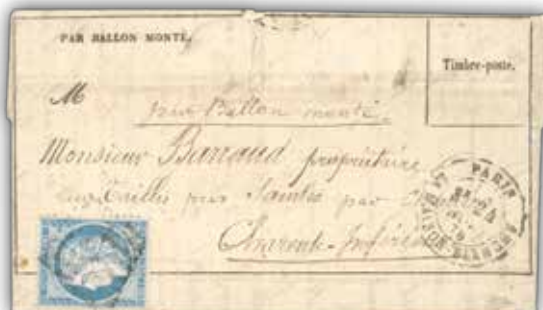 PAR BALLON MONTÉ.
Timbre-poste.
M
par Ballon monté.
Monsieur Barraud propriétaire
aux Taillis près Saintes par
Charente-Inférie
PARIS